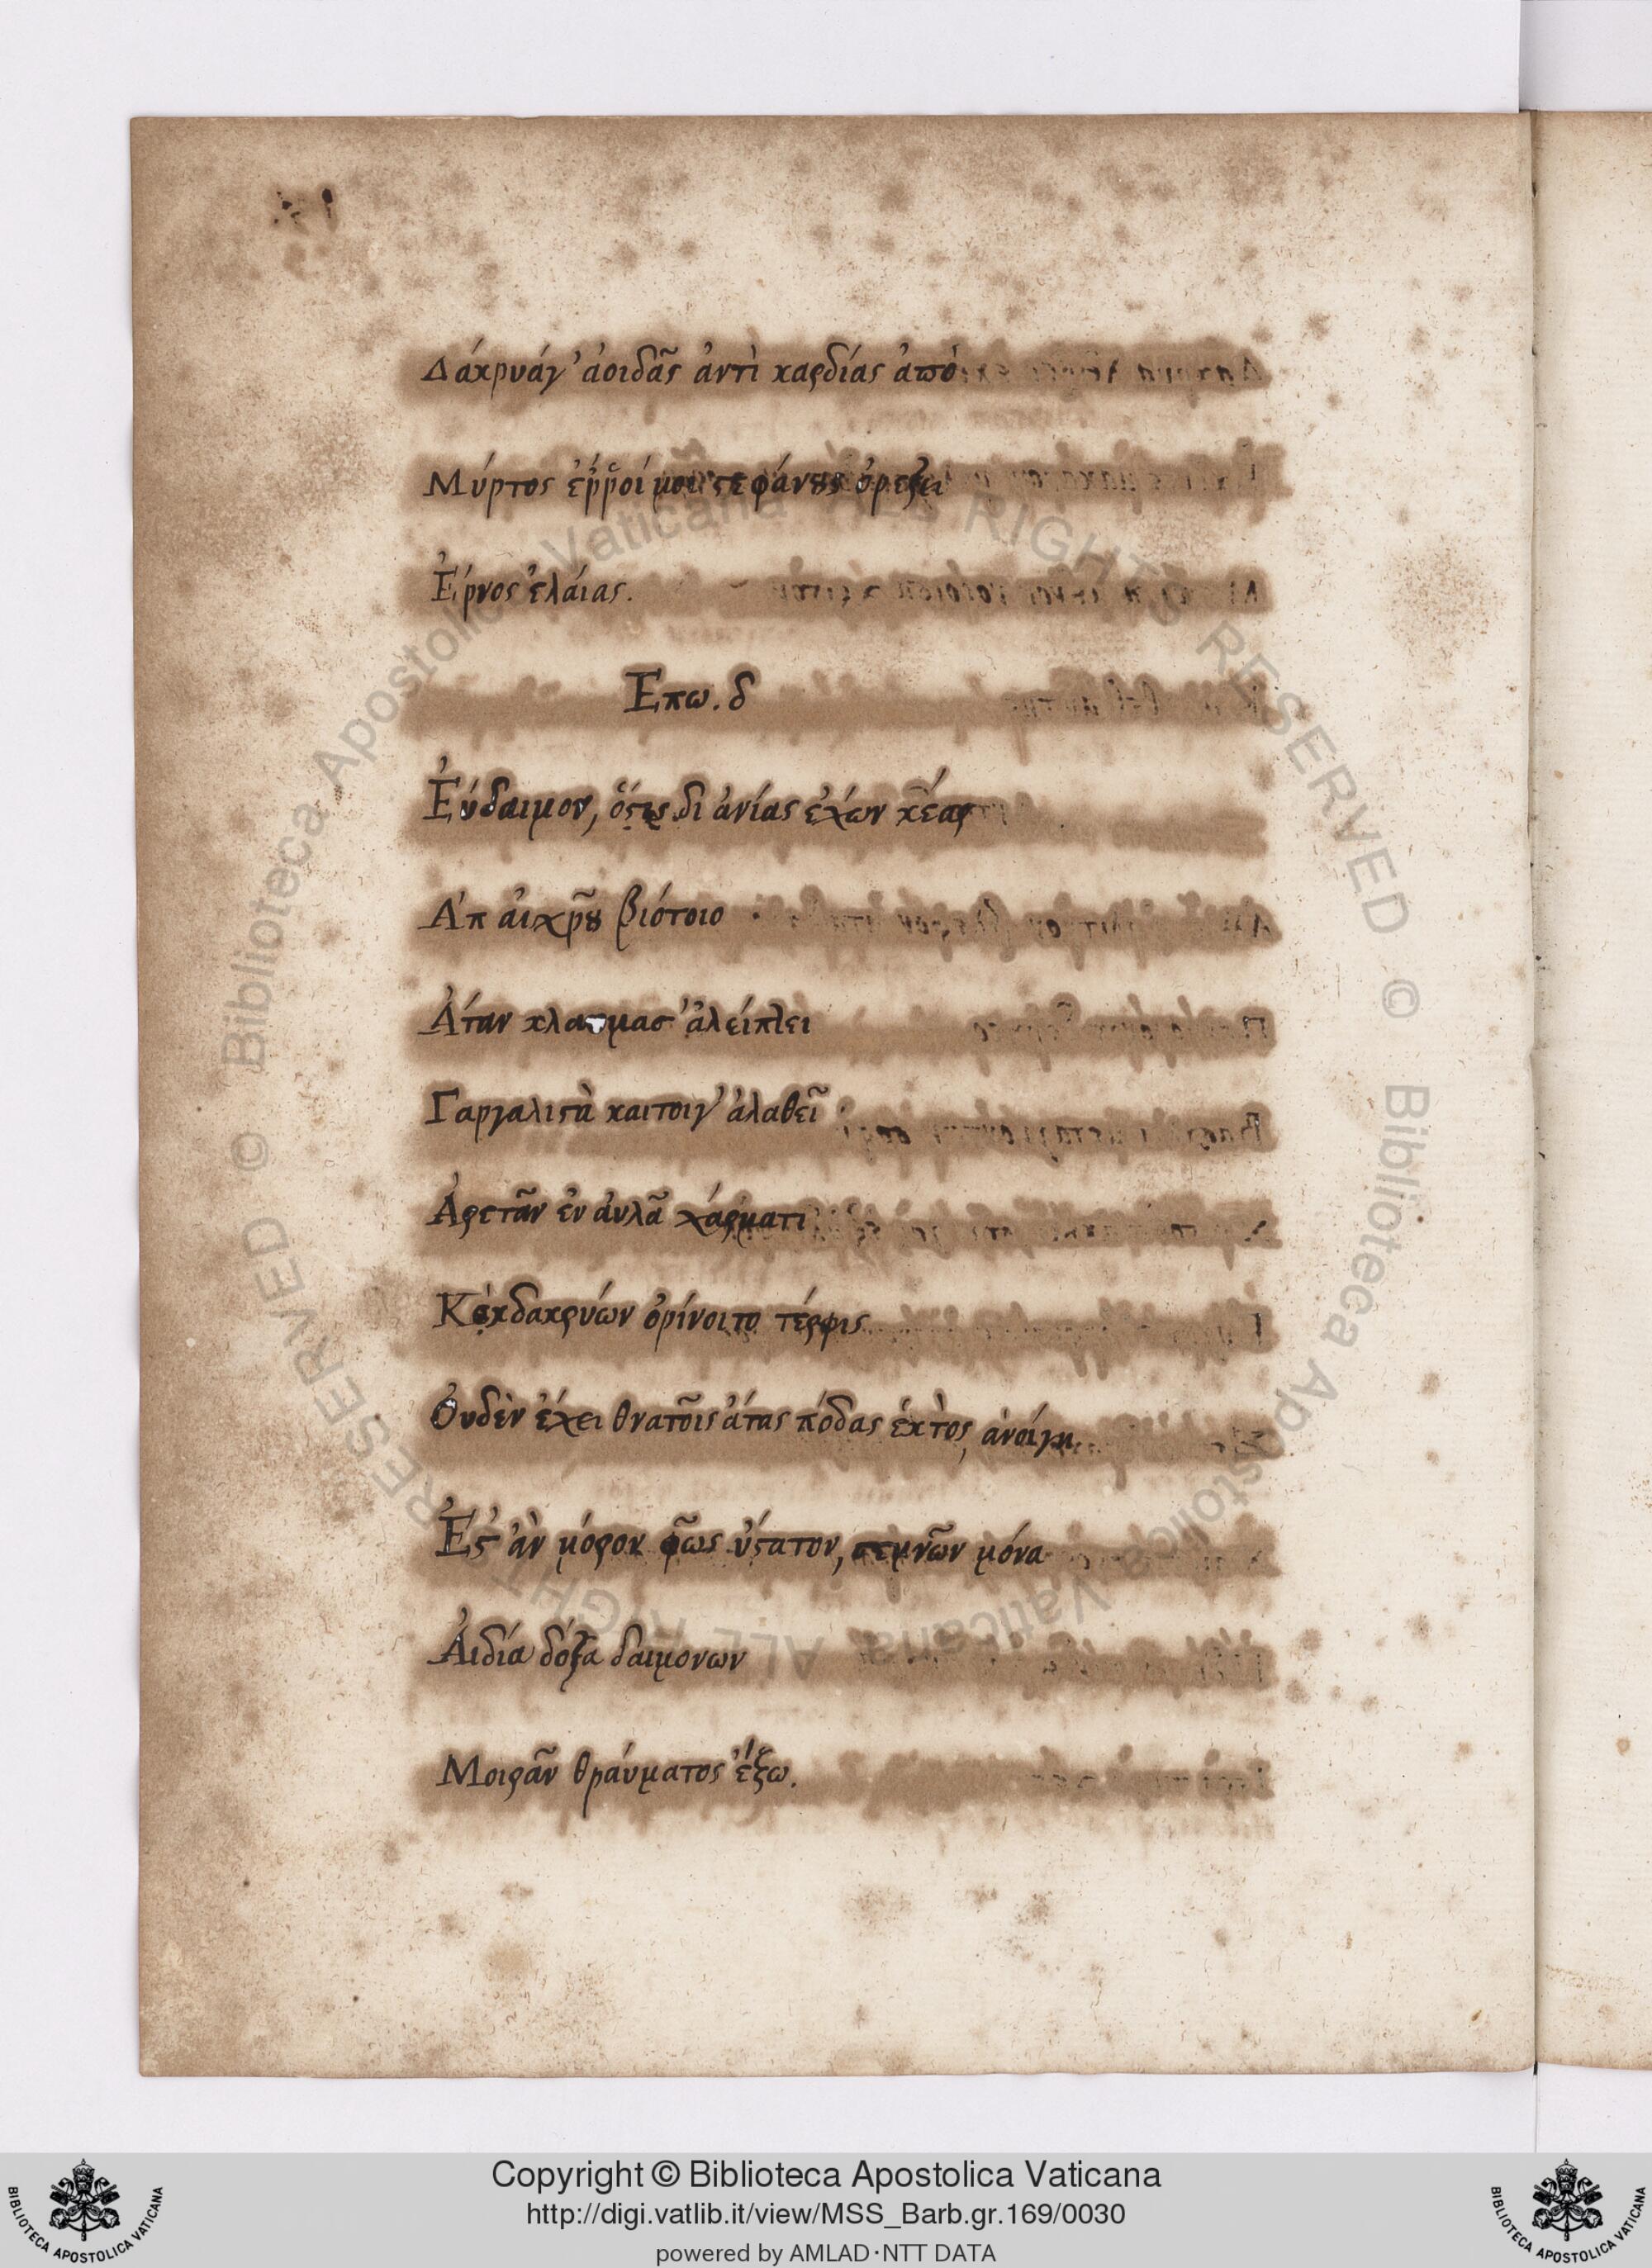 Δάκρυάγ' ἀοιδᾶς ἀντὶ καρδίας ἀπὸ
Μύρτος ἐῤῥοί μοι στεφάνους ὀρέξει
Ἔρνος ἐλάιας.
Επω. δ
Ἐύδαιμον, ὅστις δι ἀνίας ἐλών κέαρ
Ἀπ ἀιχρῦ βιότοιο
Ἄταν ἀλείπτει
Γαργαλιστὰ καιτοιγ' ἀλαθεῖ
Ἀρετᾶν ἐν ἀυλᾶ χάρματι
Κἀκδακρυών ὀρίνοιτο τέρψις
Ὀυδὲν ἔχει θνατοῖς ἄτας πόδας ἐκτὸς, ἀνοίγει
Ἐστ' ἂν μόρον φῶς ὕστατον, σεμνῶν μόνα
Ἀιδία δόξα δαιμονων
Μοιρᾶν θράυματος ἔξω.
Copyright © Biblioteca Apostolica Vaticana
http://digi.vatlib.it/view/MSS_Barb.gr.169/0030
powered by AMLAD·NTT DATA
BIBLIOTECA APOSTOLICA VATICANA
BIBLIOTECA APOSTOLICA VATICANA
© Biblioteca Apostolica Vaticana ALL RIGHTS RESERVED
© Biblioteca Apostolica Vaticana ALL RIGHTS RESERVED